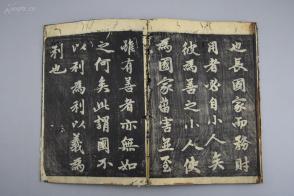 也長國家而務財
用者必自小人矣
彼為善之小人使
為國家菑害並至
雖有善者亦無如
之何矣此謂國不
以利為利以義為
利也